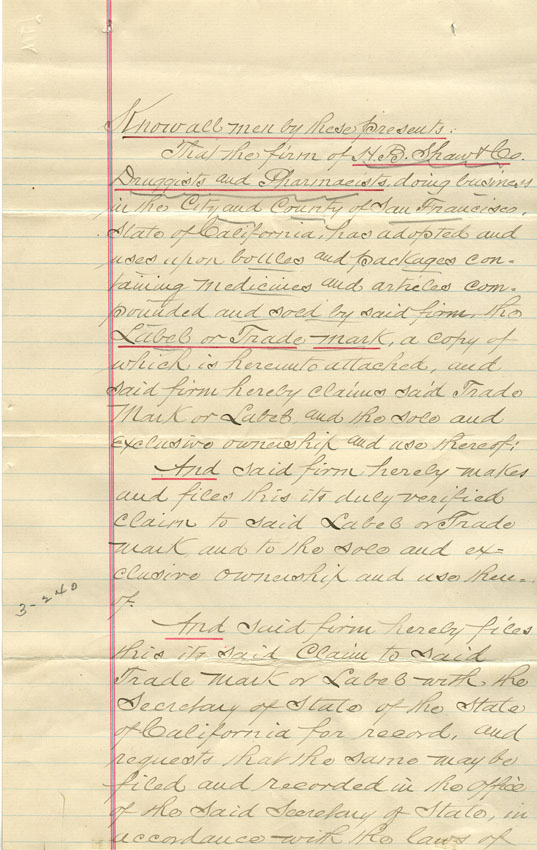 Know all men by these presents:
That the firm of H.B. Shaw & Co.
Druggists and Pharmacists, doing business
in the City and County of San Francisco,
State of California, has adopted and
uses upon bottles and packages con-
taining medicines and articles com-
pounded and sold by said firm, the
Label or Trade mark, a copy of
which is hereunto attached, and
said firm hereby claims said Trade
Mark or Label, and the sole and
exclusive ownership and use thereof;
And said firm hereby makes
and files this its duly verified
Claim to said Label or Trade
mark, and to the sole and ex-
clusive ownership and use there-
of.
3-240
And said firm hereby files
this its said Claim to said
Trade mark or Label with the
Secretary of State of the State
of California for record, and
requests that the same may be
filed and recorded in the office
of the said Secretary of State, in
accordance with the laws of